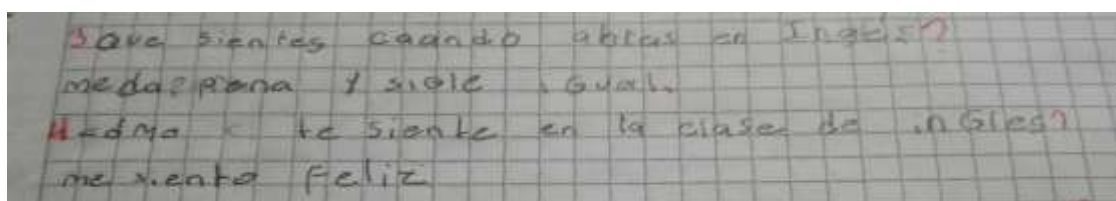 3 Que sientes cuando ablas en Ingles?
me da pena y igual.
4 como te siente en la clase de ingles?
me siento Feliz